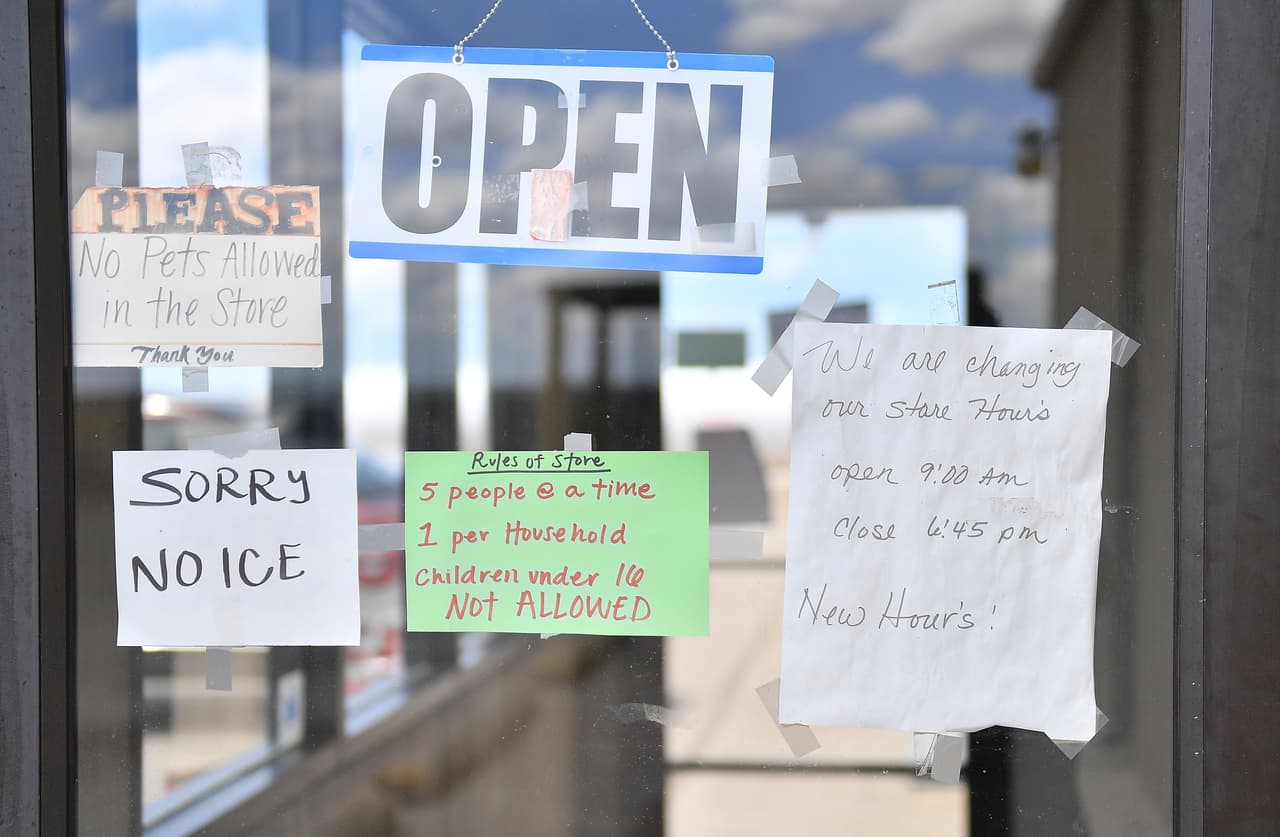 OPEN
PLEASE
No Pets Allowed
in the Store
Thank You
SORRY
NO ICE
Rules of Store
5 people @ a time
1 per Household
Children under 16
NOT ALLOWED
We are changing
our store Hour's
open 9:00 Am
Close 6:45 pm
New Hour's!